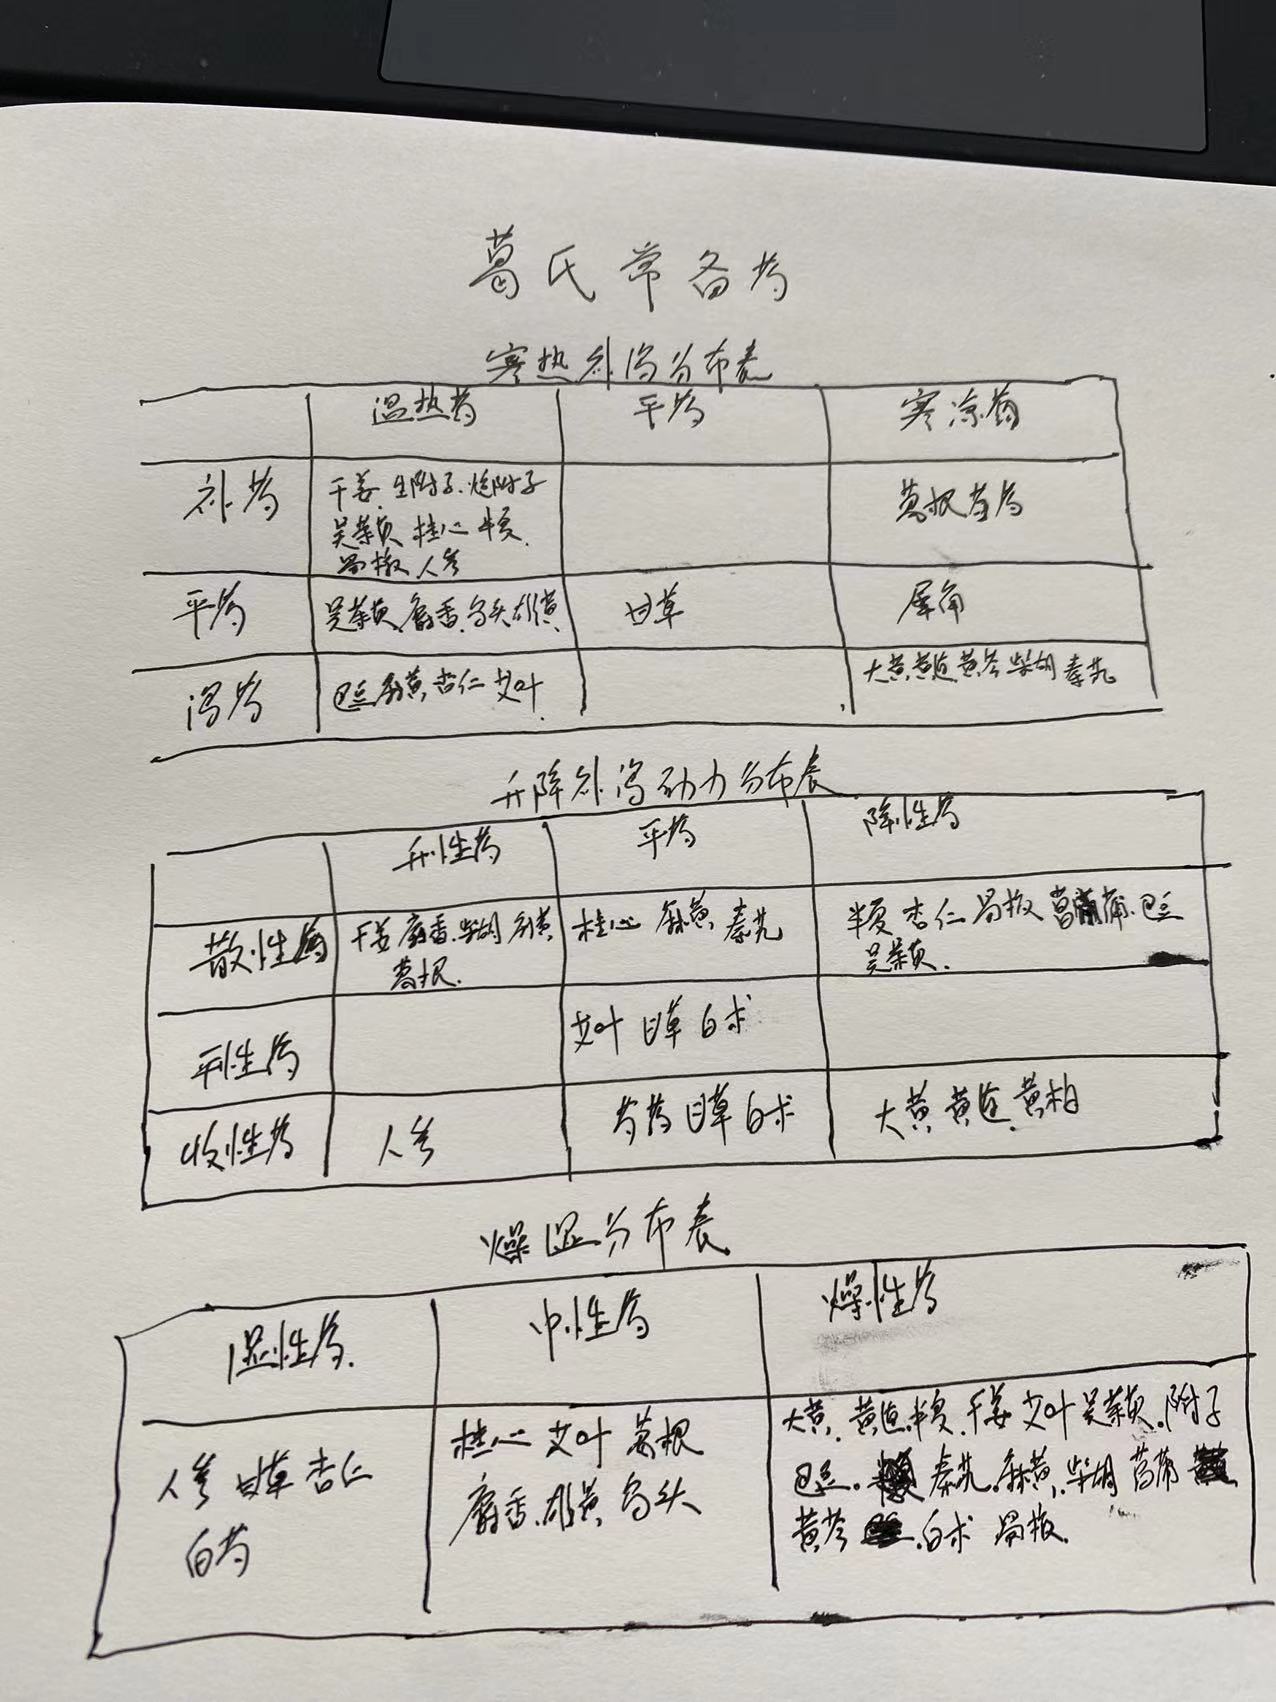 葛氏常备药
寒热补泻分布表
温热药 平药 寒凉药
补药 干姜.生附子.炮附子 葛根芍药
吴茱萸 桂心 半夏.
蜀椒 人参
平药 吴茱萸.麝香.乌头.雄黄 甘草 犀角
泻药 巴豆.麻黄.杏仁 艾叶 大黄.黄连.黄芩.柴胡.秦艽
升降补泻动力分布表
升性药 平药 降性药
散性药 干姜.麝香.柴胡 麻黄 桂心 麻黄.秦艽 半夏 杏仁 蜀椒 菖蒲.巴豆
葛根. 吴茱萸.
平性药 艾叶 甘草 白术
收性药 人参 芍药 甘草 白术 大黄.黄连.黄柏
燥湿分布表
湿性药. 中性药 燥性药
人参 甘草 杏仁 桂心 艾叶 葛根 大黄.黄连.半夏.干姜 艾叶 吴茱萸.附子
白芍 麝香.雄黄.乌头 巴豆.秦艽.麻黄.柴胡 菖蒲
黄芩.白术 蜀椒.